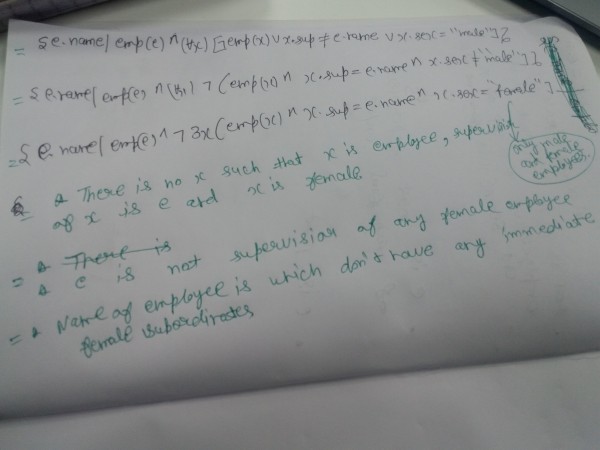 = { e.name | emp(e) ^ (∀x) [¬emp(x) ∨ x.sup ≠ e.name ∨ x.sex = "male"] }
= { e.name | emp(e) ^ (∀x) ¬ (emp(x) ^ x.sup = e.name ^ x.sex ≠ "male") }
= { e.name | emp(e) ^ ¬∃x (emp(x) ^ x.sup = e.name ^ x.sex = "female") }
only male and female employees.
= There is no x such that x is employee, supervisior
of x is e and x is female
= There is
e is not supervisior of any female employee
= Name of employee is which don't have any immediate
female subordinates